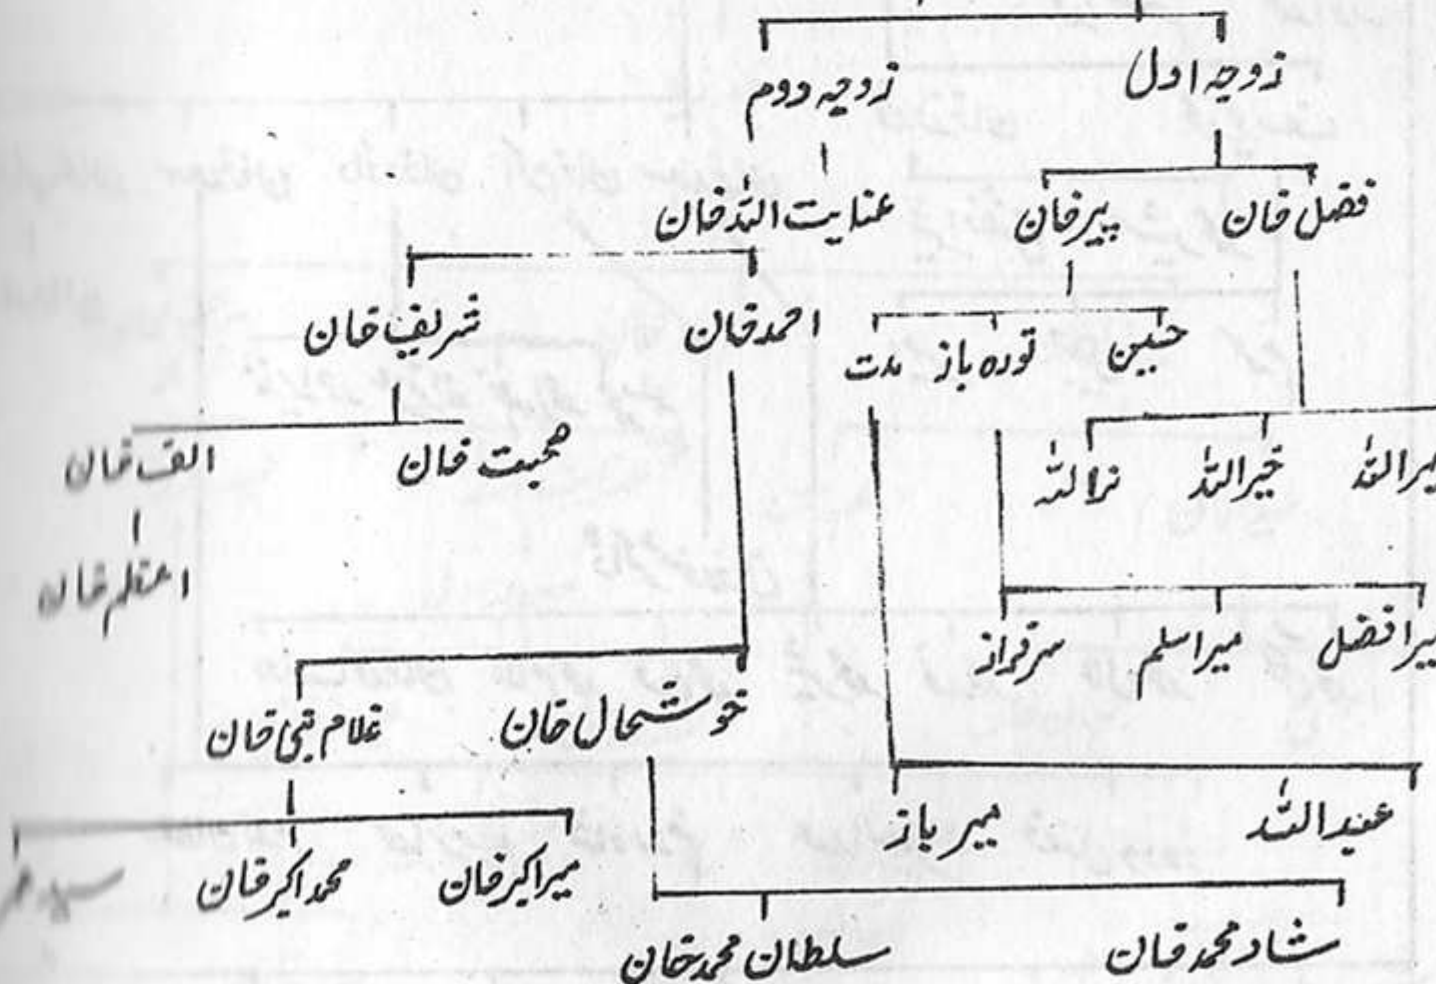 زوجہ اول زوجہ دوم
فضل خان پیر خان عنایت اللہ خان
حسین تورہ باز مدت احمد خان شریف خان
خیر اللہ محبت خان الف خان
اعظم خان
میر افضل میر اسلم سرفراز
خوشحال خان غلام نبی خان
عبید اللہ میر باز
میر اکبر خان محمد اکبر خان
شاد محمد خان سلطان محمد خان